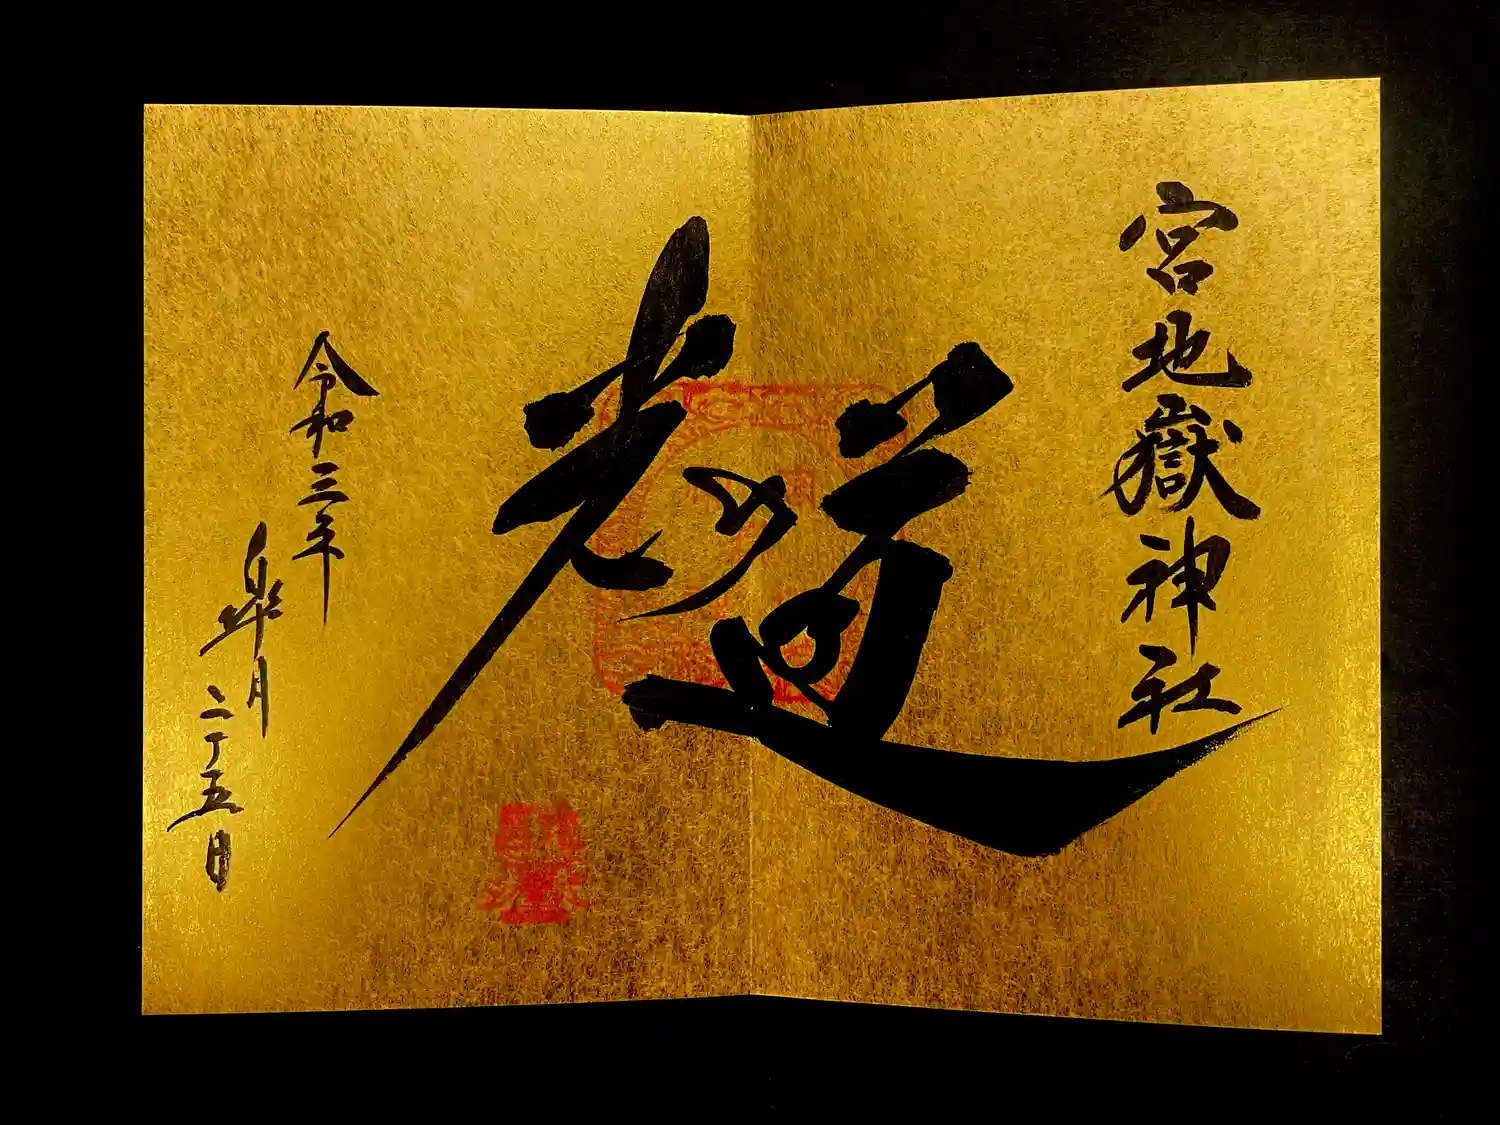 宮地嶽神社
光の道
令和三年
皐月
二十五日